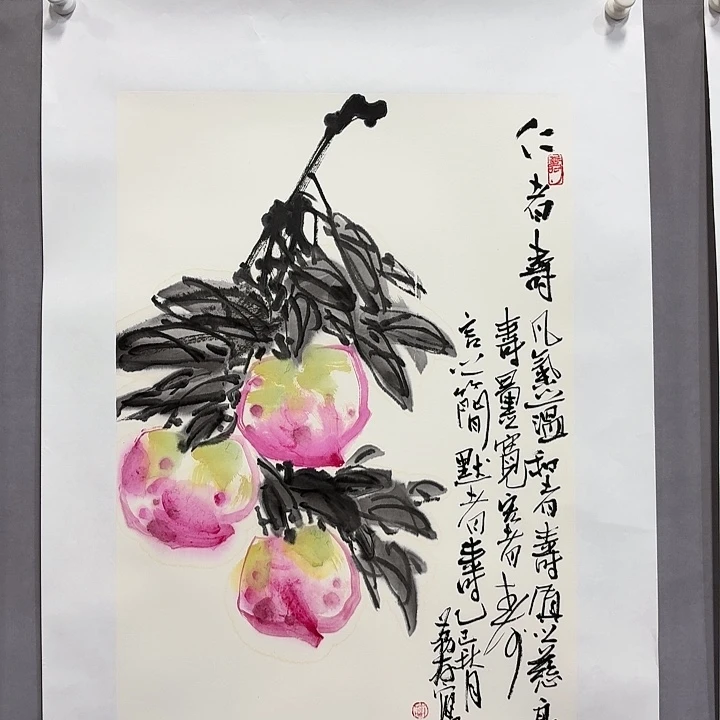 仁者壽
凡氣温和者壽質之慈
壽量寬宏者壽
言之簡默者壽乙巳秋月